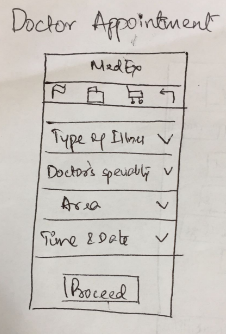 Doctor Appointment
MedExp
Type of Illness
Doctor's speciality
Area
Time & Date
Proceed